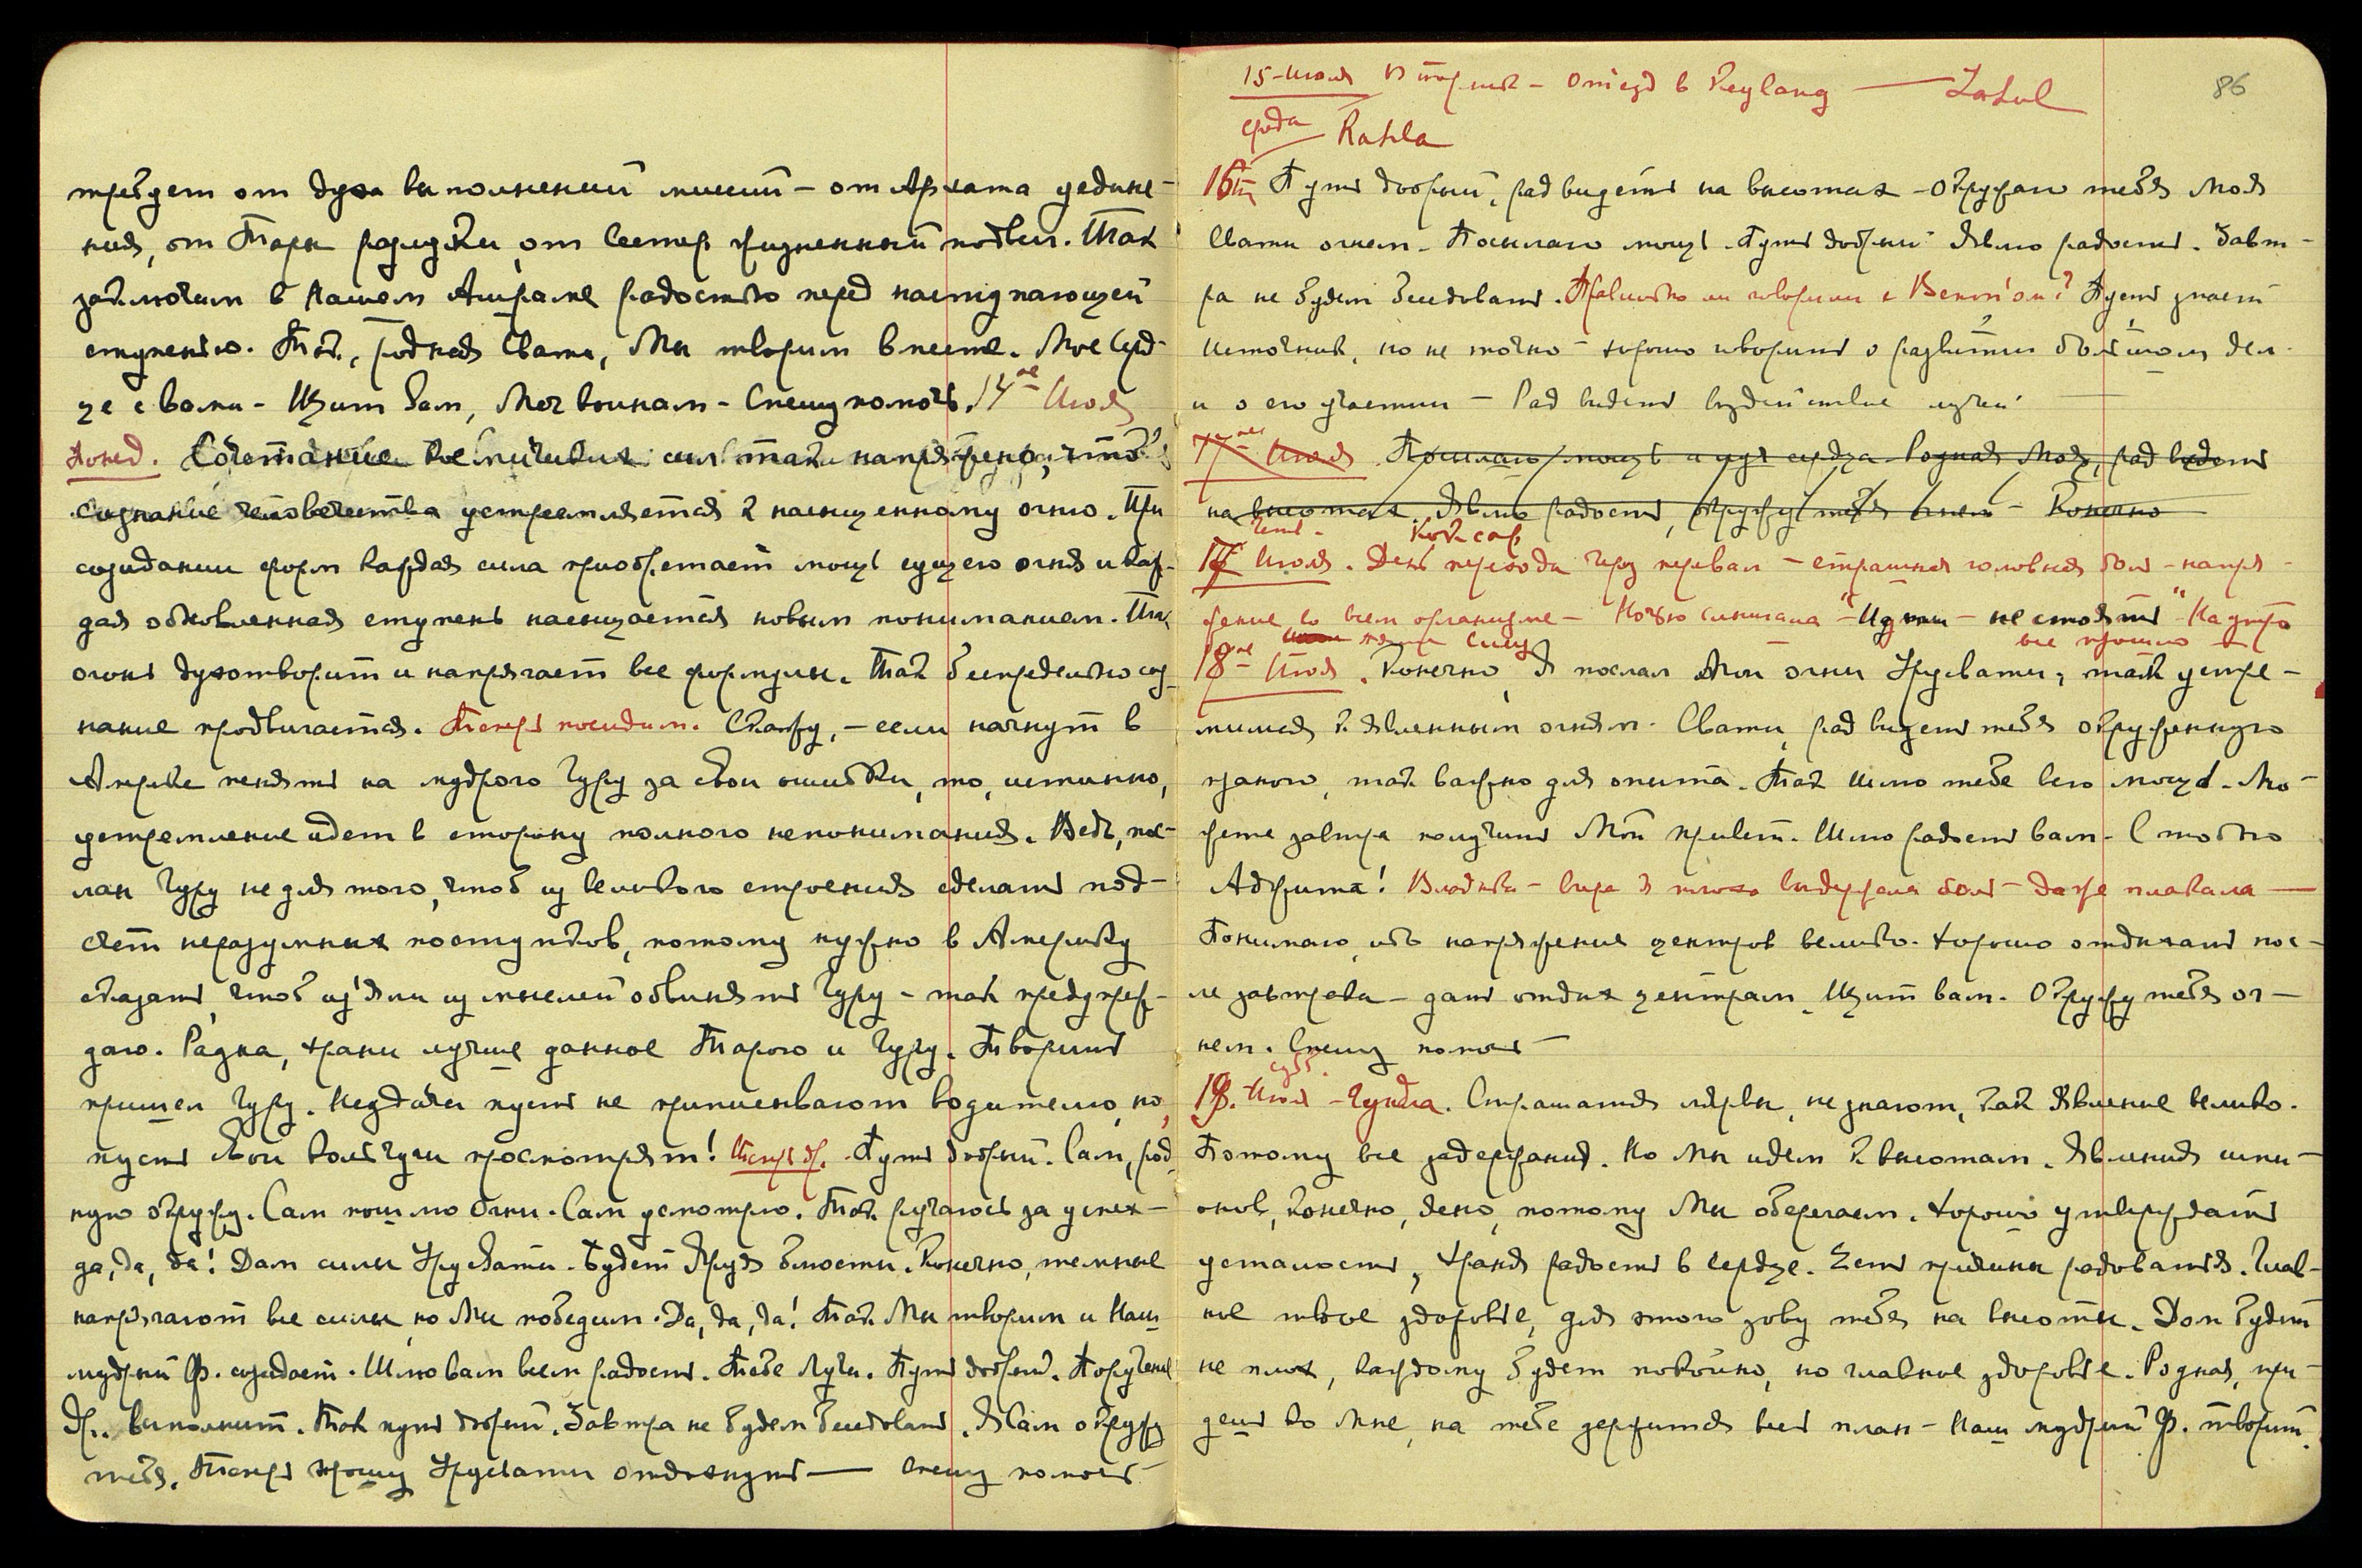 требует от духа выполнений миссий – от Архата уедине-
ния, от Тары разлуки, от Сестер жизненный подвиг. Так
заключим в Нашем Ашраме радостью перед наступающей
ступенью. Так, родная Свати, Мы творим вместе. Мое Серд-
це с вами – Щит вам, Меч воинам – Спешу помочь. 14ое Июля
Понед. Сочетание космических сил так напряжено, что
сознание человечества устремляется к насыщенному огню. При
созидании форм каждая сила приобретает мощь сущего огня и каж-
дая обновленная ступень насыщается новым пониманием. Так
огонь духотворит и напрягает все формулы. Так беспредельно соз-
нание продвигается. Теперь посидим. Скажу, – если начнут в
Америке пенять на мудрого Гуру за свои ошибки, то, истинно,
устремление идет в сторону полного непонимания. Ведь, пос-
лан Гуру не для того, чтоб из великого строения сделать под-
счет неразумных поступков, потому нужно в Америку
сказать, чтоб из'яли из мыслей обвинять Гуру – так предупреж-
даю. Радна, храни лучше данное Тарою и Гуру. Творить
пришел Гуру. Неудачи пусть не приписывают водителю, но,
пусть свои кольчуги просмотрят! Теперь др. Путь добрый. Сам, род-
ную окружу. Сам пошлю Огни. Сам усмотрю. Так ручаюсь за успех –
да, да, да! Дам силы Урусвати. Будет Яруя блюсти. Конечно, темные
напрягают все силы, но Мы победим. Да, да, да! Так Мы творим и Наш
мудрый Ф. создает. Шлю вам всем радость. Тебе Лучи. Путь добрый. Поручение
Др. выполнит. Так путь добрый. Завтра не будем беседовать. Я Сам окружу
тебя. Теперь прошу Урусвати отдохнуть — Спешу помочь –
15-Июля Вторник – Отъезд в Keylang —
86
среда
16го Путь добрый, рад видеть на высотах – Окружаю тебя Моя
Свати огнем – Посылаю мощь. Путь добрый. Являю радость. Завт-
ра не будем беседовать. Правильно ли говорили с
источник, но не точно – хорошо говорить о развитии большом дел.
и о его участии – Рад видеть воздействие лучей —
17ое Июля Посылаю мощь и луч сердца. Родная Моя, рад видеть
на высотах. Являю радость, окружу тебя огнем – Конечно
17 Июля. День перехода через перевал – страшная головная боль – напря-
жение во всем организме – Ночью слышала "Идти – не стоять" На утро
все прошло –
18ое Июля. Конечно, Я послал Мои огни Урусвати, так устре-
мимся к явленным огням. Свати, рад видеть тебя окруженную
праною, так важно для опыта. Так шлю тебе всю мощь. Мо-
жете завтра получить Мой привет. Шлю радость вам. С тобою
Владыка – вчера я плохо выдержала боль – даже плакала —
Понимаю, ибо напряжение центров велико. Хорошо отдыхать пос-
ле завтрака – дать отдых центрам. Щит вам. Окружу тебя ог-
нем. Спешу помочь –
субб.
19. Июля – Гундла. Страшатся лярвы, не знают, как явление велико.
Потому все задержания. Но Мы идем к высотам. Явления шпи-
онов, конечно, ясно, потому Мы оберегаем. Хорошо утверждать
усталость, храня радость в сердце. Есть причины радоваться. Глав-
ное твое здоровье, для этого зову тебя на высоты. Дом будет
не плох, каждому будет покойно, но главное здоровье. Родная, при-
дешь ко Мне, на тебе держится весь план – Наш мудрый Ф. творит.